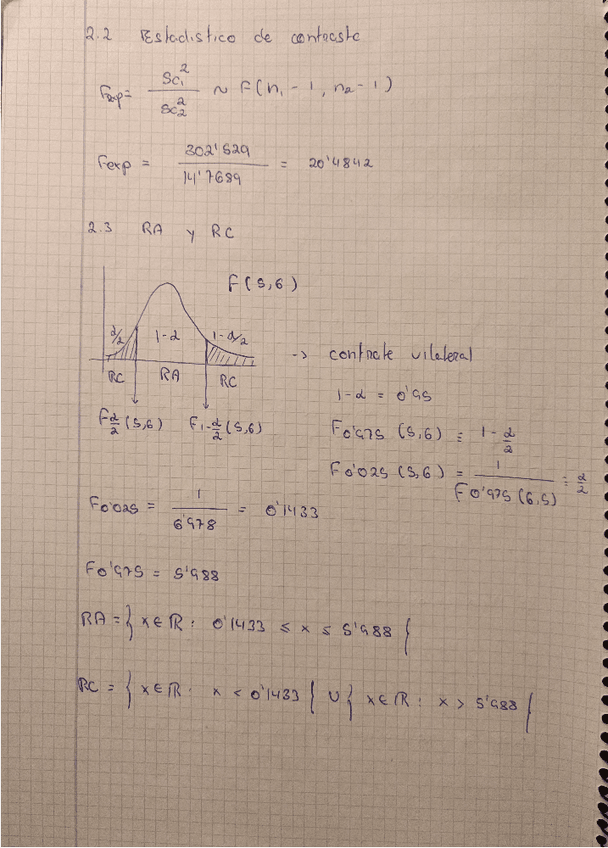 2.2 Estadistico de contraste
Fexp = Sc₁² / Sc₂² ~ F(n₁ - 1, n₂ - 1)
Fexp = 302'529 / 14'7689 = 20'4842
2.3 RA y RC
F(5,6)
α/2 1-α 1-α/2
RC RA RC
Fα/2 (5,6) F1-α/2 (5,6)
-> contraste vilateral
1-α = 0'95
F0'975 (5,6) = 1-α/2
F0'025 (5,6) = 1 / F0'975 (6,5) = α/2
F0'025 = 1 / 6'978 = 0'1433
F0'975 = 5'988
RA = { x ∈ ℝ : 0'1433 ≤ x ≤ 5'988 }
RC = { x ∈ ℝ : x < 0'1433 } ∪ { x ∈ ℝ : x > 5'988 }